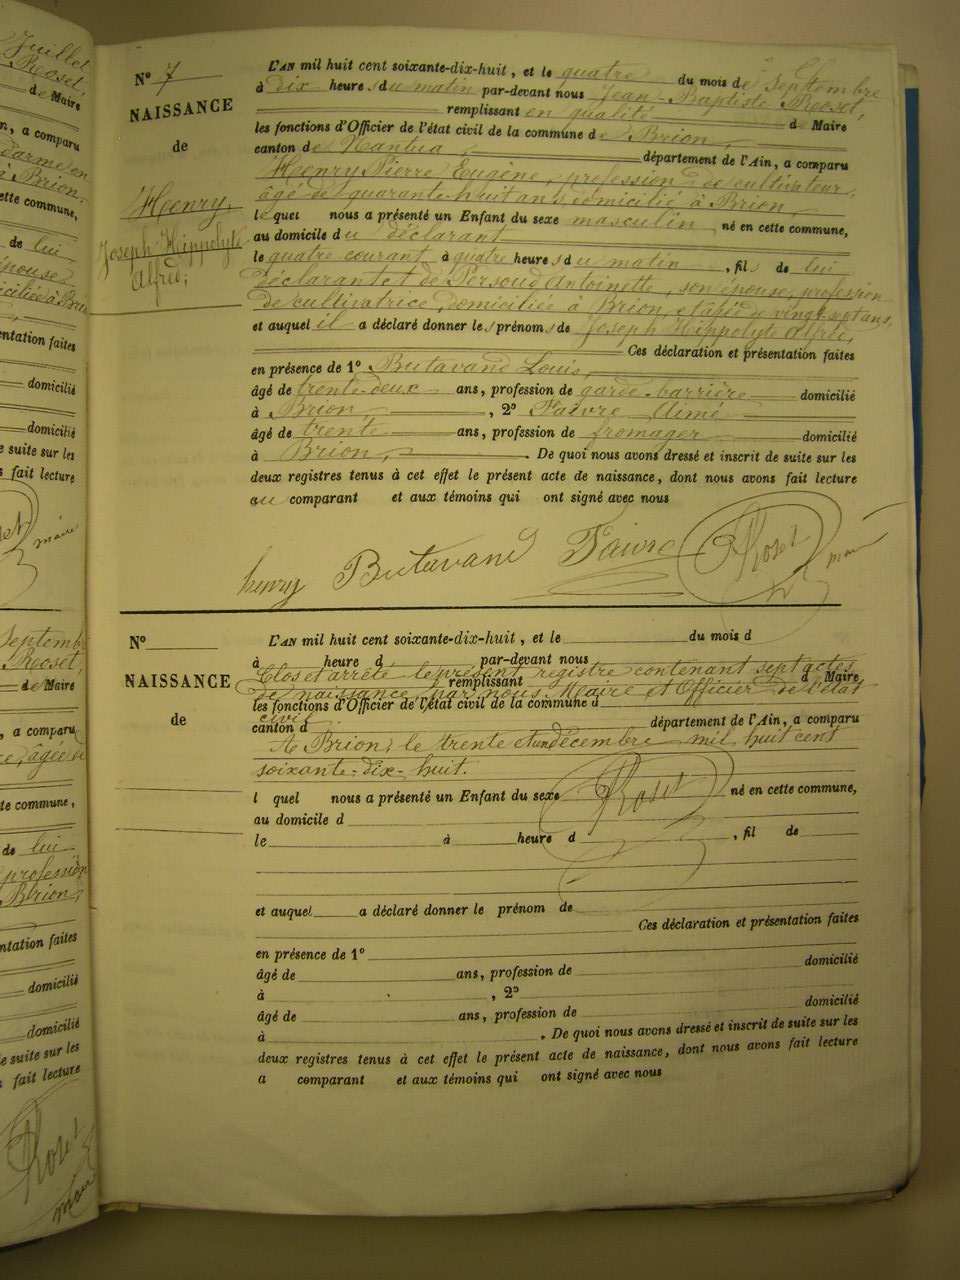 Juillet
Rozet,
de Maire
n, a comparu
darme en
à Brion,
ette commune,
de lui
épouse
iciliée à Brion
ntation faites
domicilié
domicilié
e suite sur les
s fait lecture
maire
Septembre
Rozet,
de Maire
, a comparu
âgée de
te commune,
de lui
profession
Brion,
ntation faites
domicilié
domicilié
e suite sur les
fait lecture
Rozet
maire
N° 7
NAISSANCE
de
Henry,
Joseph Hippolyte
Alfred;
L'AN mil huit cent soixante-dix-huit, et le quatre du mois de Septembre
à dix heures du matin par-devant nous Jean-Baptiste Rozet,
remplissant en qualité de Maire
les fonctions d'Officier de l'état civil de la commune de Brion,
canton de Nantua, département de l'Ain, a comparu
Henry Pierre Eugène, profession de cultivateur,
âgé de quarante-huit ans, domicilié à Brion,
lequel nous a présenté un Enfant du sexe masculin né en cette commune,
au domicile du déclarant
le quatre courant à quatre heures du matin, fils de lui
déclarant et de Persoud Antoinette, son épouse, profession
de cultivatrice, domiciliée à Brion, et âgée de vingt-sept ans,
et auquel il a déclaré donner les prénoms de Joseph Hippolyte Alfred,
Ces déclaration et présentation faites
en présence de 1° Butavand Louis,
âgé de trente-deux ans, profession de garde-barrière domicilié
à Brion, , 2° Faivre Aimé
âgé de trente ans, profession de fromager domicilié
à Brion, . De quoi nous avons dressé et inscrit de suite sur les
deux registres tenus à cet effet le présent acte de naissance, dont nous avons fait lecture
au comparant et aux témoins qui ont signé avec nous
henry Butavand Faivre Rozet
N°
NAISSANCE
de
L'AN mil huit cent soixante-dix-huit, et le du mois d
à heure d par-devant nous
Clos et arrêté le présent registre contenant sept actes
remplissant d Maire
de naissance, par nous, Maire et Officier de l'état
les fonctions d'Officier de l'état civil de la commune d
civil
canton d département de l'Ain, a comparu
A Brion, le trente et un décembre mil huit cent
soixante-dix-huit.
l quel nous a présenté un Enfant du sexe Rozet né en cette commune,
au domicile d
le à heure d , fil de
et auquel a déclaré donner le prénom de
Ces déclaration et présentation faites
en présence de 1°
âgé de ans, profession de domicilié
à , 2°
âgé de ans, profession de domicilié
à . De quoi nous avons dressé et inscrit de suite sur les
deux registres tenus à cet effet le présent acte de naissance, dont nous avons fait lecture
a comparant et aux témoins qui ont signé avec nous